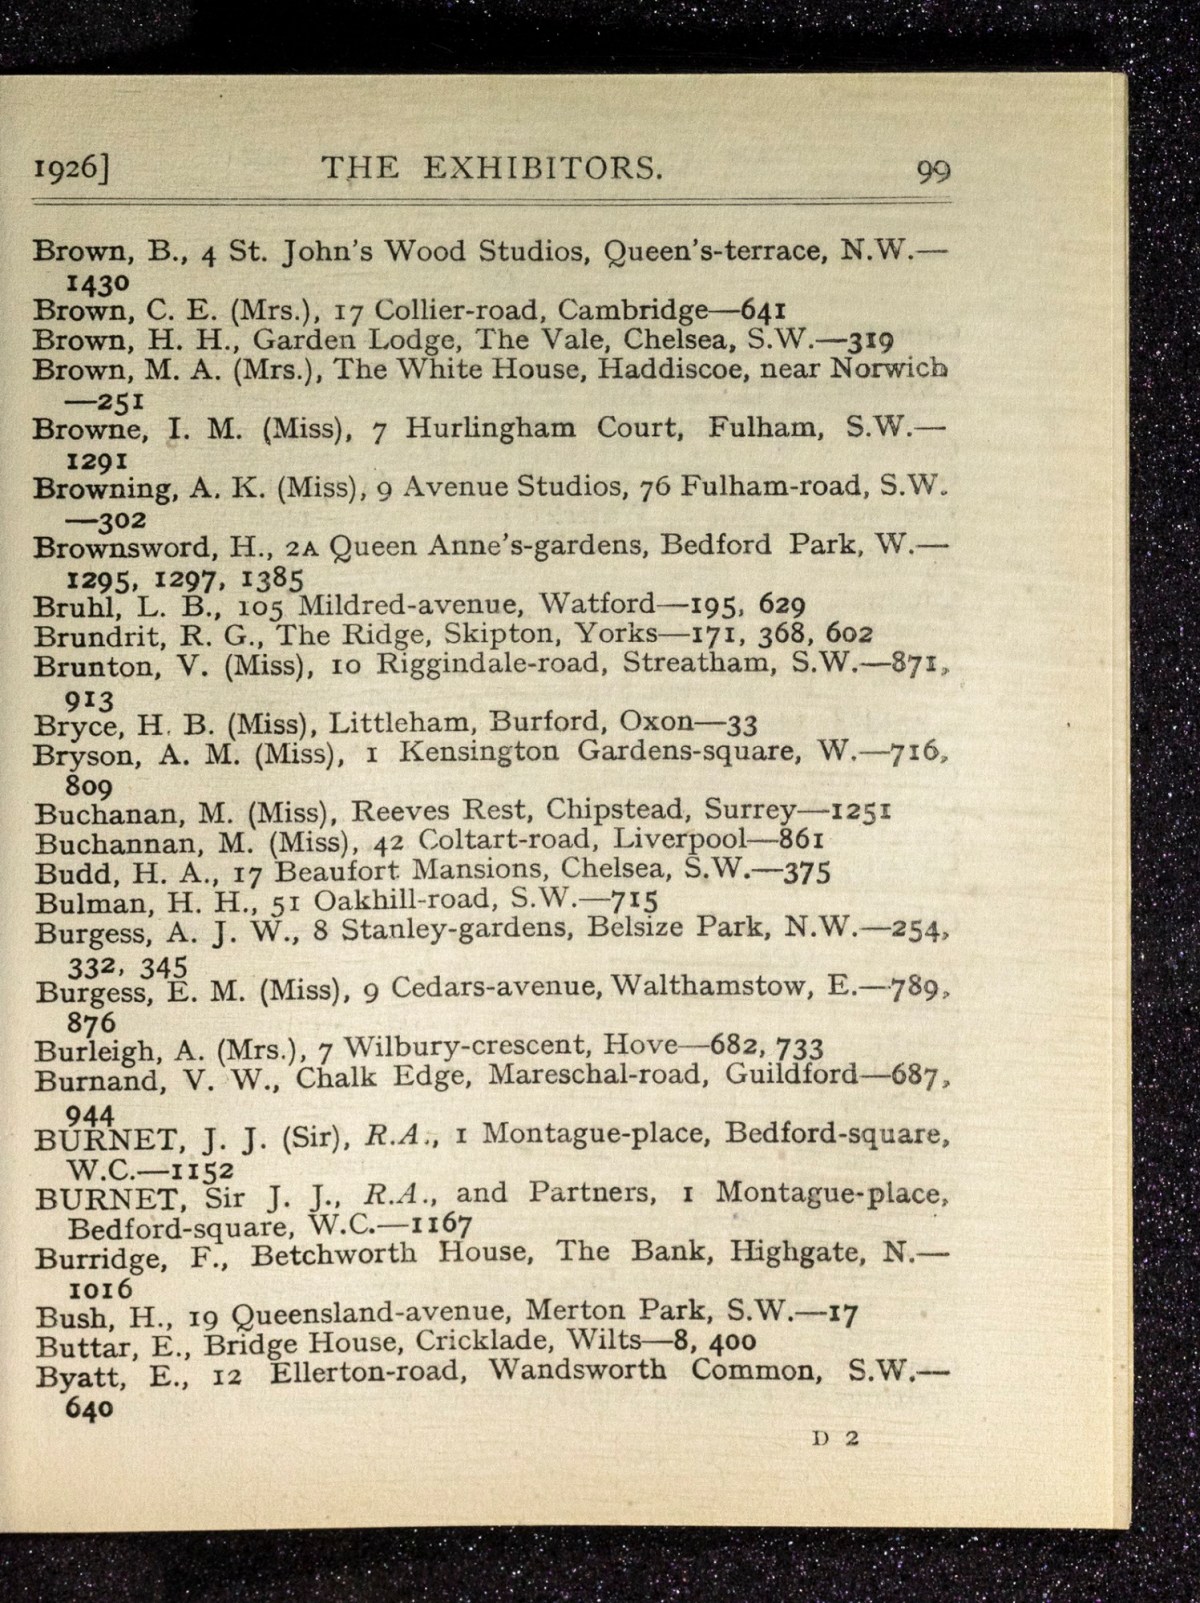 1926] THE EXHIBITORS. 99
Brown, B., 4 St. John's Wood Studios, Queen's-terrace, N.W.—
1430
Brown, C. E. (Mrs.), 17 Collier-road, Cambridge—641
Brown, H. H., Garden Lodge, The Vale, Chelsea, S.W.—319
Brown, M. A. (Mrs.), The White House, Haddiscoe, near Norwich
—251
Browne, I. M. (Miss), 7 Hurlingham Court, Fulham, S.W.—
1291
Browning, A. K. (Miss), 9 Avenue Studios, 76 Fulham-road, S.W.
—302
Brownsword, H., 2A Queen Anne's-gardens, Bedford Park, W.—
1295, 1297, 1385
Bruhl, L. B., 105 Mildred-avenue, Watford—195, 629
Brundrit, R. G., The Ridge, Skipton, Yorks—171, 368, 602
Brunton, V. (Miss), 10 Riggindale-road, Streatham, S.W.—871,
913
Bryce, H. B. (Miss), Littleham, Burford, Oxon—33
Bryson, A. M. (Miss), 1 Kensington Gardens-square, W.—716,
809
Buchanan, M. (Miss), Reeves Rest, Chipstead, Surrey—1251
Buchannan, M. (Miss), 42 Coltart-road, Liverpool—861
Budd, H. A., 17 Beaufort Mansions, Chelsea, S.W.—375
Bulman, H. H., 51 Oakhill-road, S.W.—715
Burgess, A. J. W., 8 Stanley-gardens, Belsize Park, N.W.—254,
332, 345
Burgess, E. M. (Miss), 9 Cedars-avenue, Walthamstow, E.—789,
876
Burleigh, A. (Mrs.), 7 Wilbury-crescent, Hove—682, 733
Burnand, V. W., Chalk Edge, Mareschal-road, Guildford—687,
944
BURNET, J. J. (Sir), R.A., 1 Montague-place, Bedford-square,
W.C.—1152
BURNET, Sir J. J., R.A., and Partners, 1 Montague-place,
Bedford-square, W.C.—1167
Burridge, F., Betchworth House, The Bank, Highgate, N.—
1016
Bush, H., 19 Queensland-avenue, Merton Park, S.W.—17
Buttar, E., Bridge House, Cricklade, Wilts—8, 400
Byatt, E., 12 Ellerton-road, Wandsworth Common, S.W.—
640
D 2